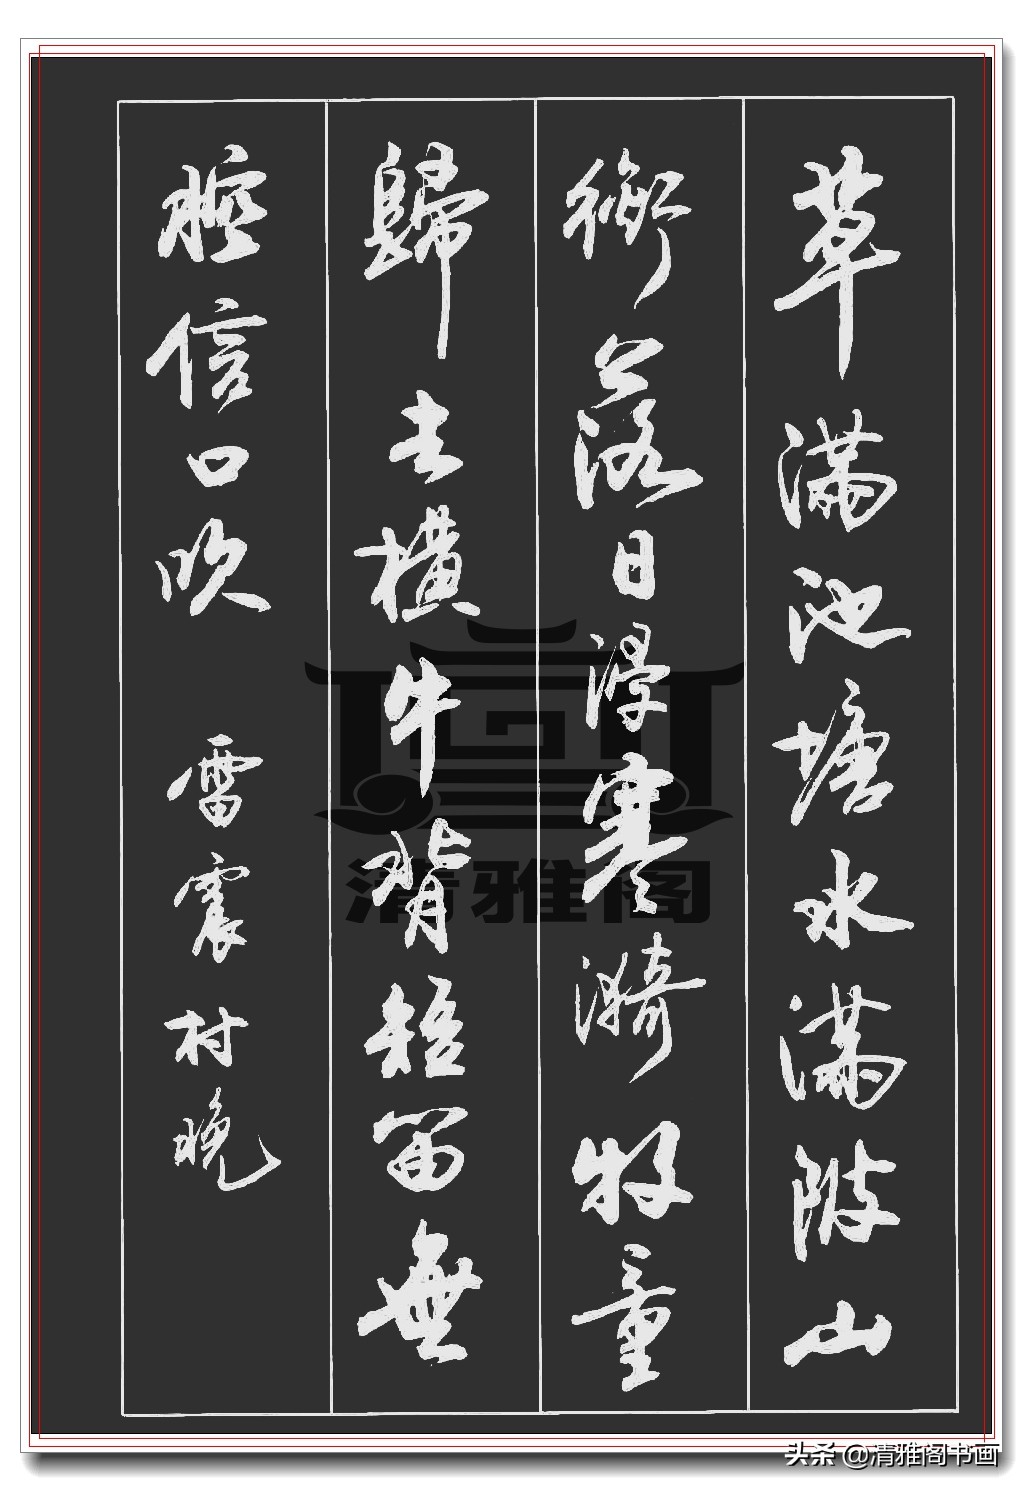 草满池塘水满陂山
衔落日浸寒漪牧童
歸去横牛背短笛無
腔信口吹 雷震 村晚
清雅阁
头条 @清雅阁书画